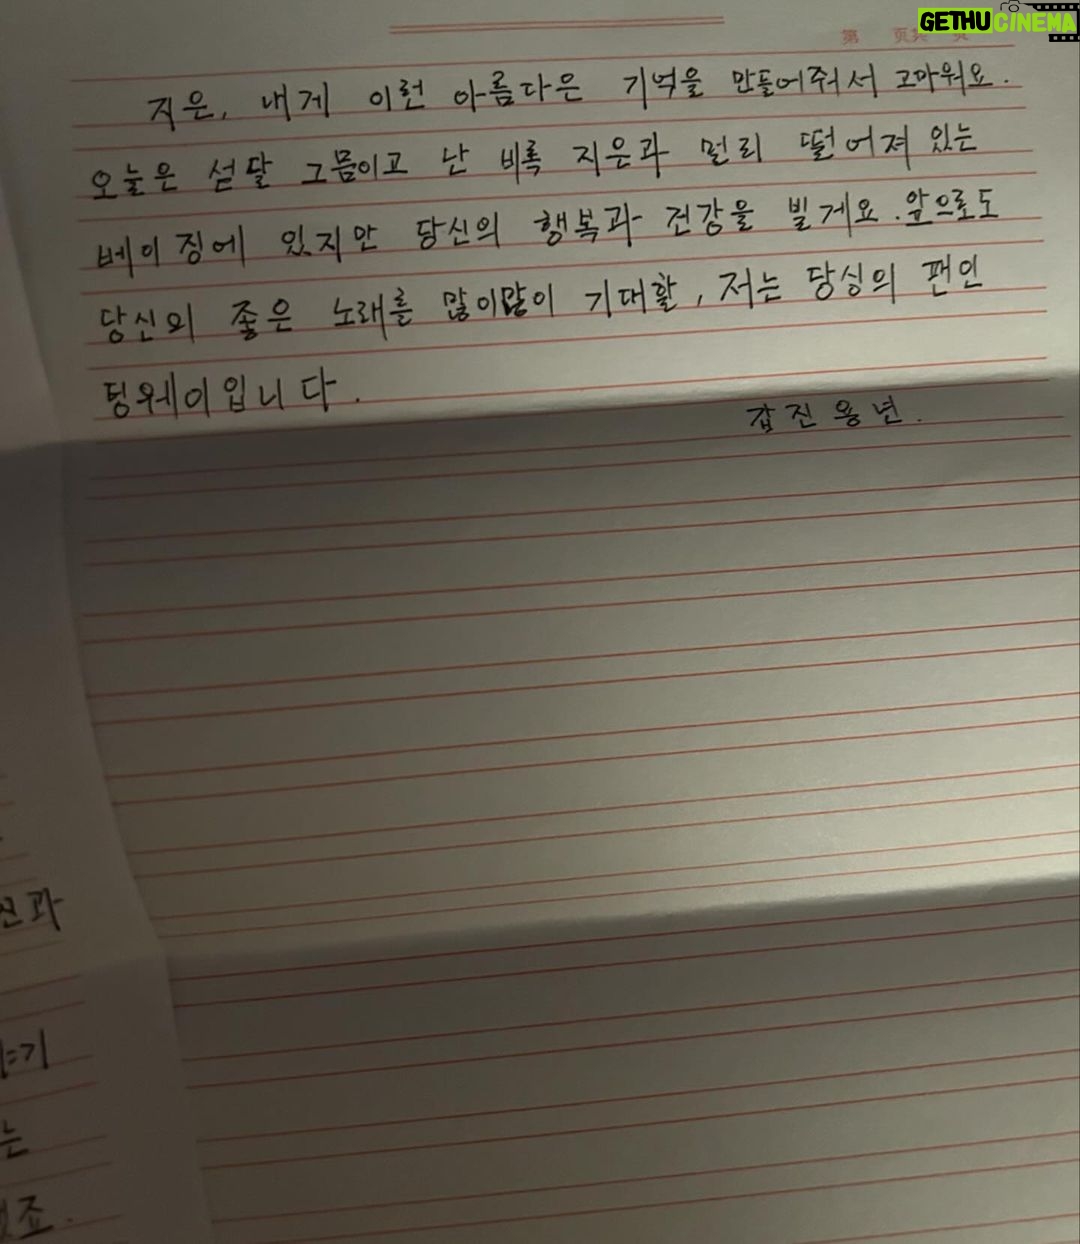 GETHU CINEMA
第 页共 页
지은, 내게 이런 아름다은 기억을 만들어줘서 고마워요.
오늘은 섣달 그믐이고 난 비록 지은과 멀리 떨어져 있는
베이징에 있지만 당신의 행복과 건강을 빌게요. 앞으로도
당신의 좋은 노래를 많이많이 기대할, 저는 당싱의 팬인
딩웨이입니다.
갑진용년.
과
기
는
죠.